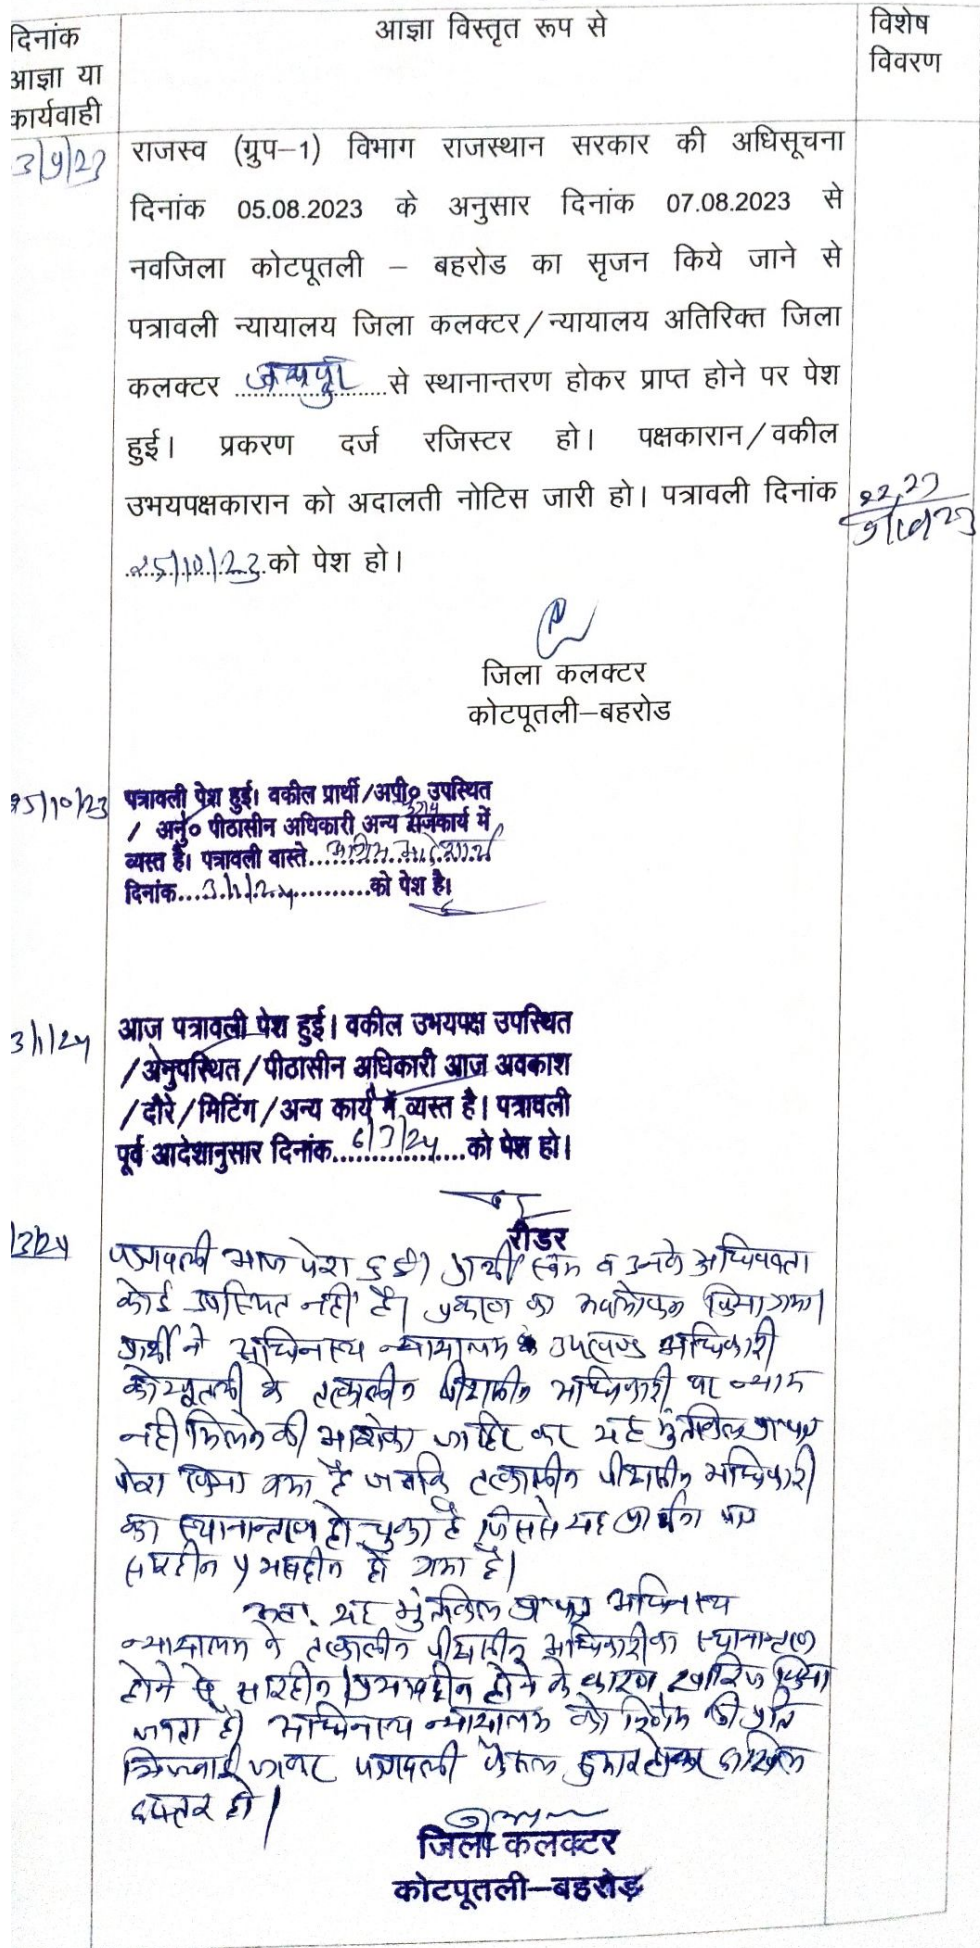 दिनांक
आज्ञा या
कार्यवाही
आज्ञा विस्तृत रूप से
विशेष
विवरण
राजस्व (ग्रुप–1) विभाग राजस्थान सरकार की अधिसूचना
दिनांक 05.08.2023 के अनुसार दिनांक 07.08.2023 से
नवजिला कोटपूतली – बहरोड का सृजन किये जाने से
पत्रावली न्यायालय जिला कलक्टर/न्यायालय अतिरिक्त जिला
कलक्टर जयपुर से स्थानान्तरण होकर प्राप्त होने पर पेश
हुई। प्रकरण दर्ज रजिस्टर हो। पक्षकारान/वकील
उभयपक्षकारान को अदालती नोटिस जारी हो। पत्रावली दिनांक
25/10/23 को पेश हो।
जिला कलक्टर
कोटपूतली–बहरोड
25/10/23
पत्रावली पेश हुई। वकील प्रार्थी/अपी० उपस्थित
/ अनु० पीठासीन अधिकारी अन्य राजकार्य में
व्यस्त है। पत्रावली वास्ते
दिनांक...3/1/24...को पेश है।
3/1/24
आज पत्रावली पेश हुई। वकील उभयपक्ष उपस्थित
/अनुपस्थित/पीठासीन अधिकारी आज अवकाश
/दौरे/मिटिंग/अन्य कार्य में व्यस्त है। पत्रावली
पूर्व आदेशानुसार दिनांक...6/3/24...को पेश हो।
रीडर
/3/24
पत्रावली आज पेश हुई। प्रार्थी स्वयं व उनके अधिवक्ता
कोई उपस्थित नहीं है। प्रकरण का अवलोकन किया गया।
प्रार्थी ने अधिनस्थ न्यायालय उपखण्ड अधिकारी
कोटपूतली के तत्कालीन पीठासीन अधिकारी पर न्याय
नहीं मिलने की आशंका जाहिर कर यह मुंतकिल प्रा०पत्र
पेश किया गया है जबकि तत्कालीन पीठासीन अधिकारी
का स्थानान्तरण हो चुका है जिससे यह प्रार्थना पत्र
हो गया है।
अतः यह मुंतकिल प्रा०पत्र अधिनस्थ
न्यायालय के तत्कालीन पीठासीन अधिकारी का स्थानान्तरण
होने से सारहीन होने के कारण खारिज किया
जाता है। अधिनस्थ न्यायालय को निर्णय की प्रति
भिजवाई जाकर पत्रावली फैसल शुमार होकर दाखिल
दफ्तर हो।
जिला कलक्टर
कोटपूतली–बहरोड़